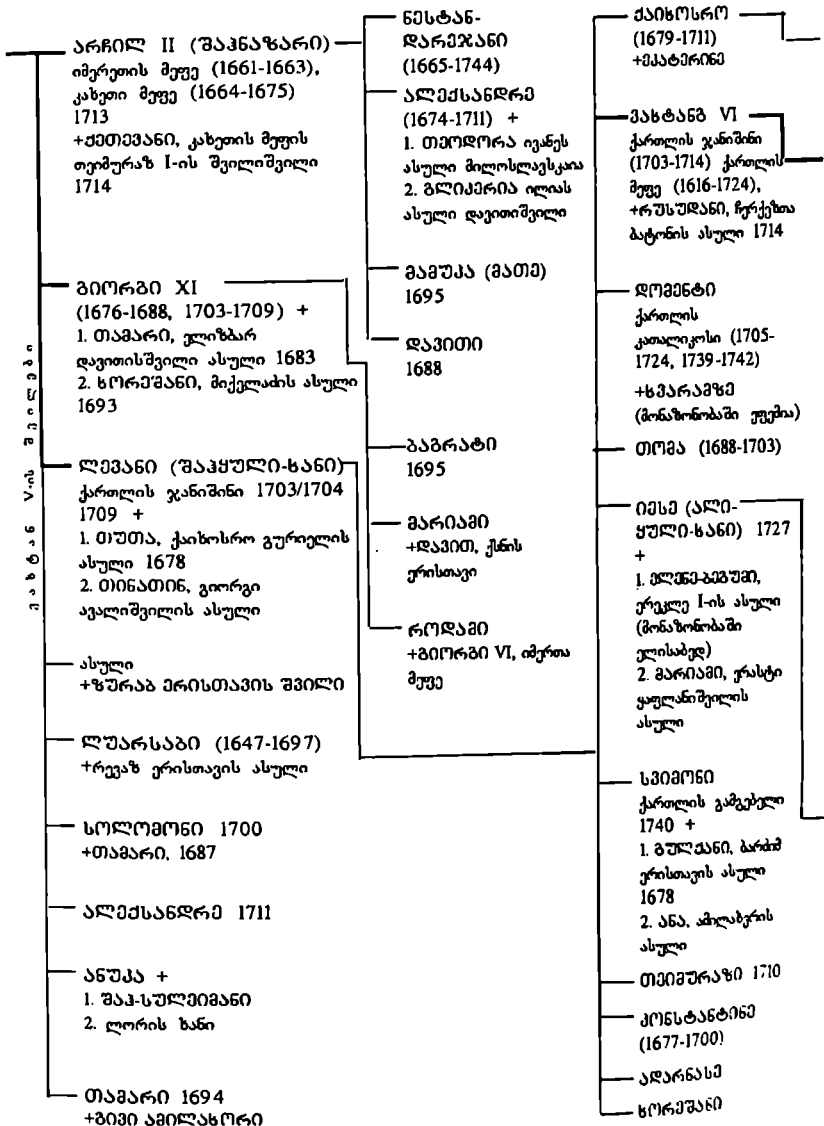 ვახტანგ V-ის შვილები
არჩილ II (შაჰნაზარი)
იმერეთის მეფე (1661-1663),
კახეთი მეფე (1664-1675)
1713
+ქეთევანი, კახეთის მეფის
თეიმურაზ I-ის შვილიშვილი
1714
გიორგი XI
(1676-1688, 1703-1709) +
1. თამარი, ელიზბარ
დავითისშვილი ასული 1683
2. ხორეშანი, მიქელაძის ასული
1693
ლევანი (შაჰყული-ხანი)
ქართლის ჯანიშინი 1703/1704
1709 +
1. თუთა, ქაიხოსრო გურიელის
ასული 1678
2. თინათინ, გიორგი
ავალიშვილის ასული
ასული
+ზურაბ ერისთავის შვილი
ლუარსაბი (1647-1697)
+რევაზ ერისთავის ასული
სოლომონი 1700
+თამარი, 1687
ალექსანდრე 1711
ანუკა +
1. შაჰ-სულეიმანი
2. ლორის ხანი
თამარი 1694
+გივი ამილახორი
ნესტან-
დარეჯანი
(1665-1744)
ალექსანდრე
(1674-1711) +
1. თეოდორა ივანეს
ასული მილოსლავსკაია
2. გლიკერია ილიას
ასული დავითიშვილი
მამუკა (მათე)
1695
დავითი
1688
ბაგრატი
1695
მარიამი
+დავით, ქსნის
ერისთავი
როდამი
+გიორგი VI, იმერთა
მეფე
ქაიხოსრო
(1679-1711)
+ეკატერინე
ვახტანგ VI
ქართლის ჯანიშინი
(1703-1714) ქართლის
მეფე (1616-1724),
+რუსუდანი, ჩერქეზთა
ბატონის ასული 1714
დომენტი
ქართლის
კათალიკოსი (1705-
1724, 1739-1742)
+ხვარამზე
(მონაზონობაში ეფემია)
თომა (1688-1703)
იესე (ალი-
ყული-ხანი) 1727
+
1. ელენე-ბეგუმი,
ერეკლე I-ის ასული
(მონაზონობაში
ელისაბედ)
2. მარიამი, ერასტი
ყაფლანიშვილის
ასული
სვიმონი
ქართლის გამგებელი
1740 +
1. გულქანი, ბარძიმ
ერისთავის ასული
1678
2. ანა, ამილახვრის
ასული
თეიმურაზი 1710
კონსტანტინე
(1677-1700)
ადარნასე
ხორეშანი